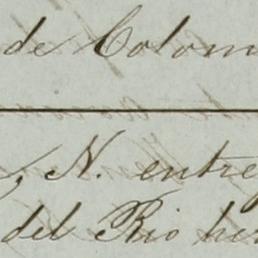 de Colom
, N. entre
del Rio her